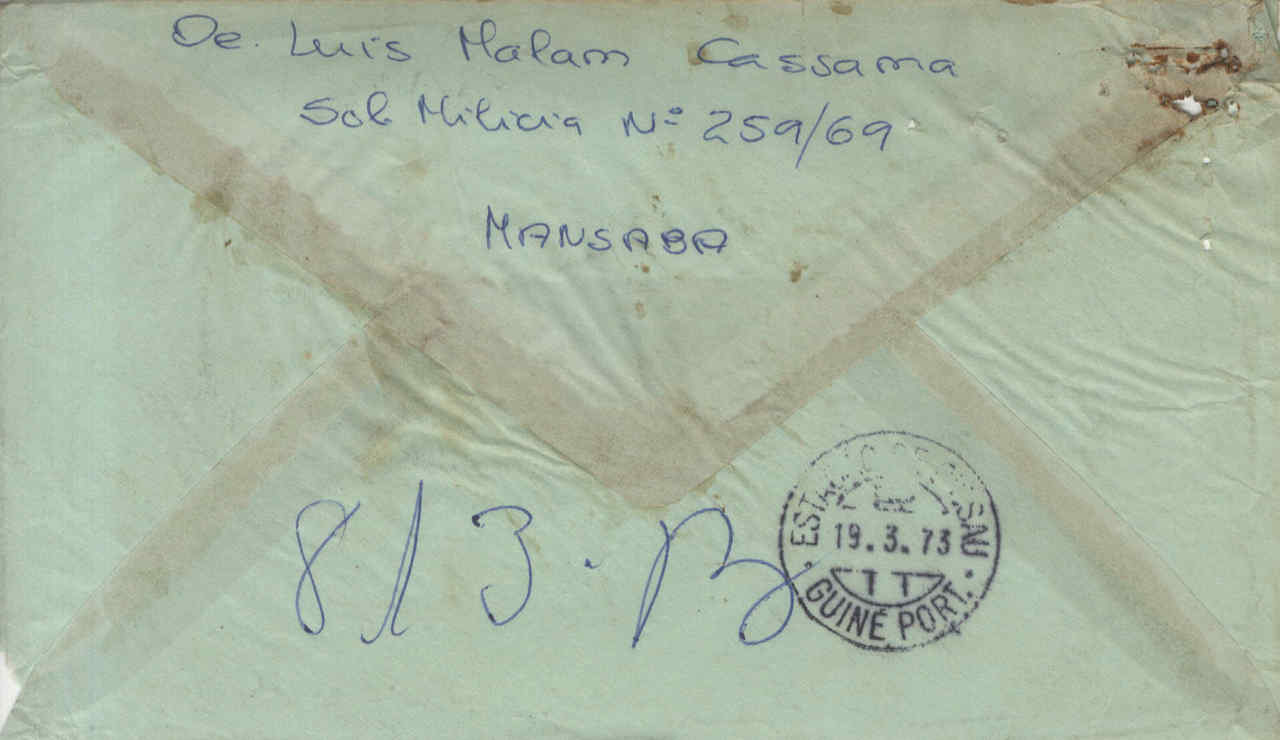 De. Luis Malam Cassama
Sol Milicia Nº 259/69
MANSABA
813.B
19.3.73
TT
GUINÉ PORT.